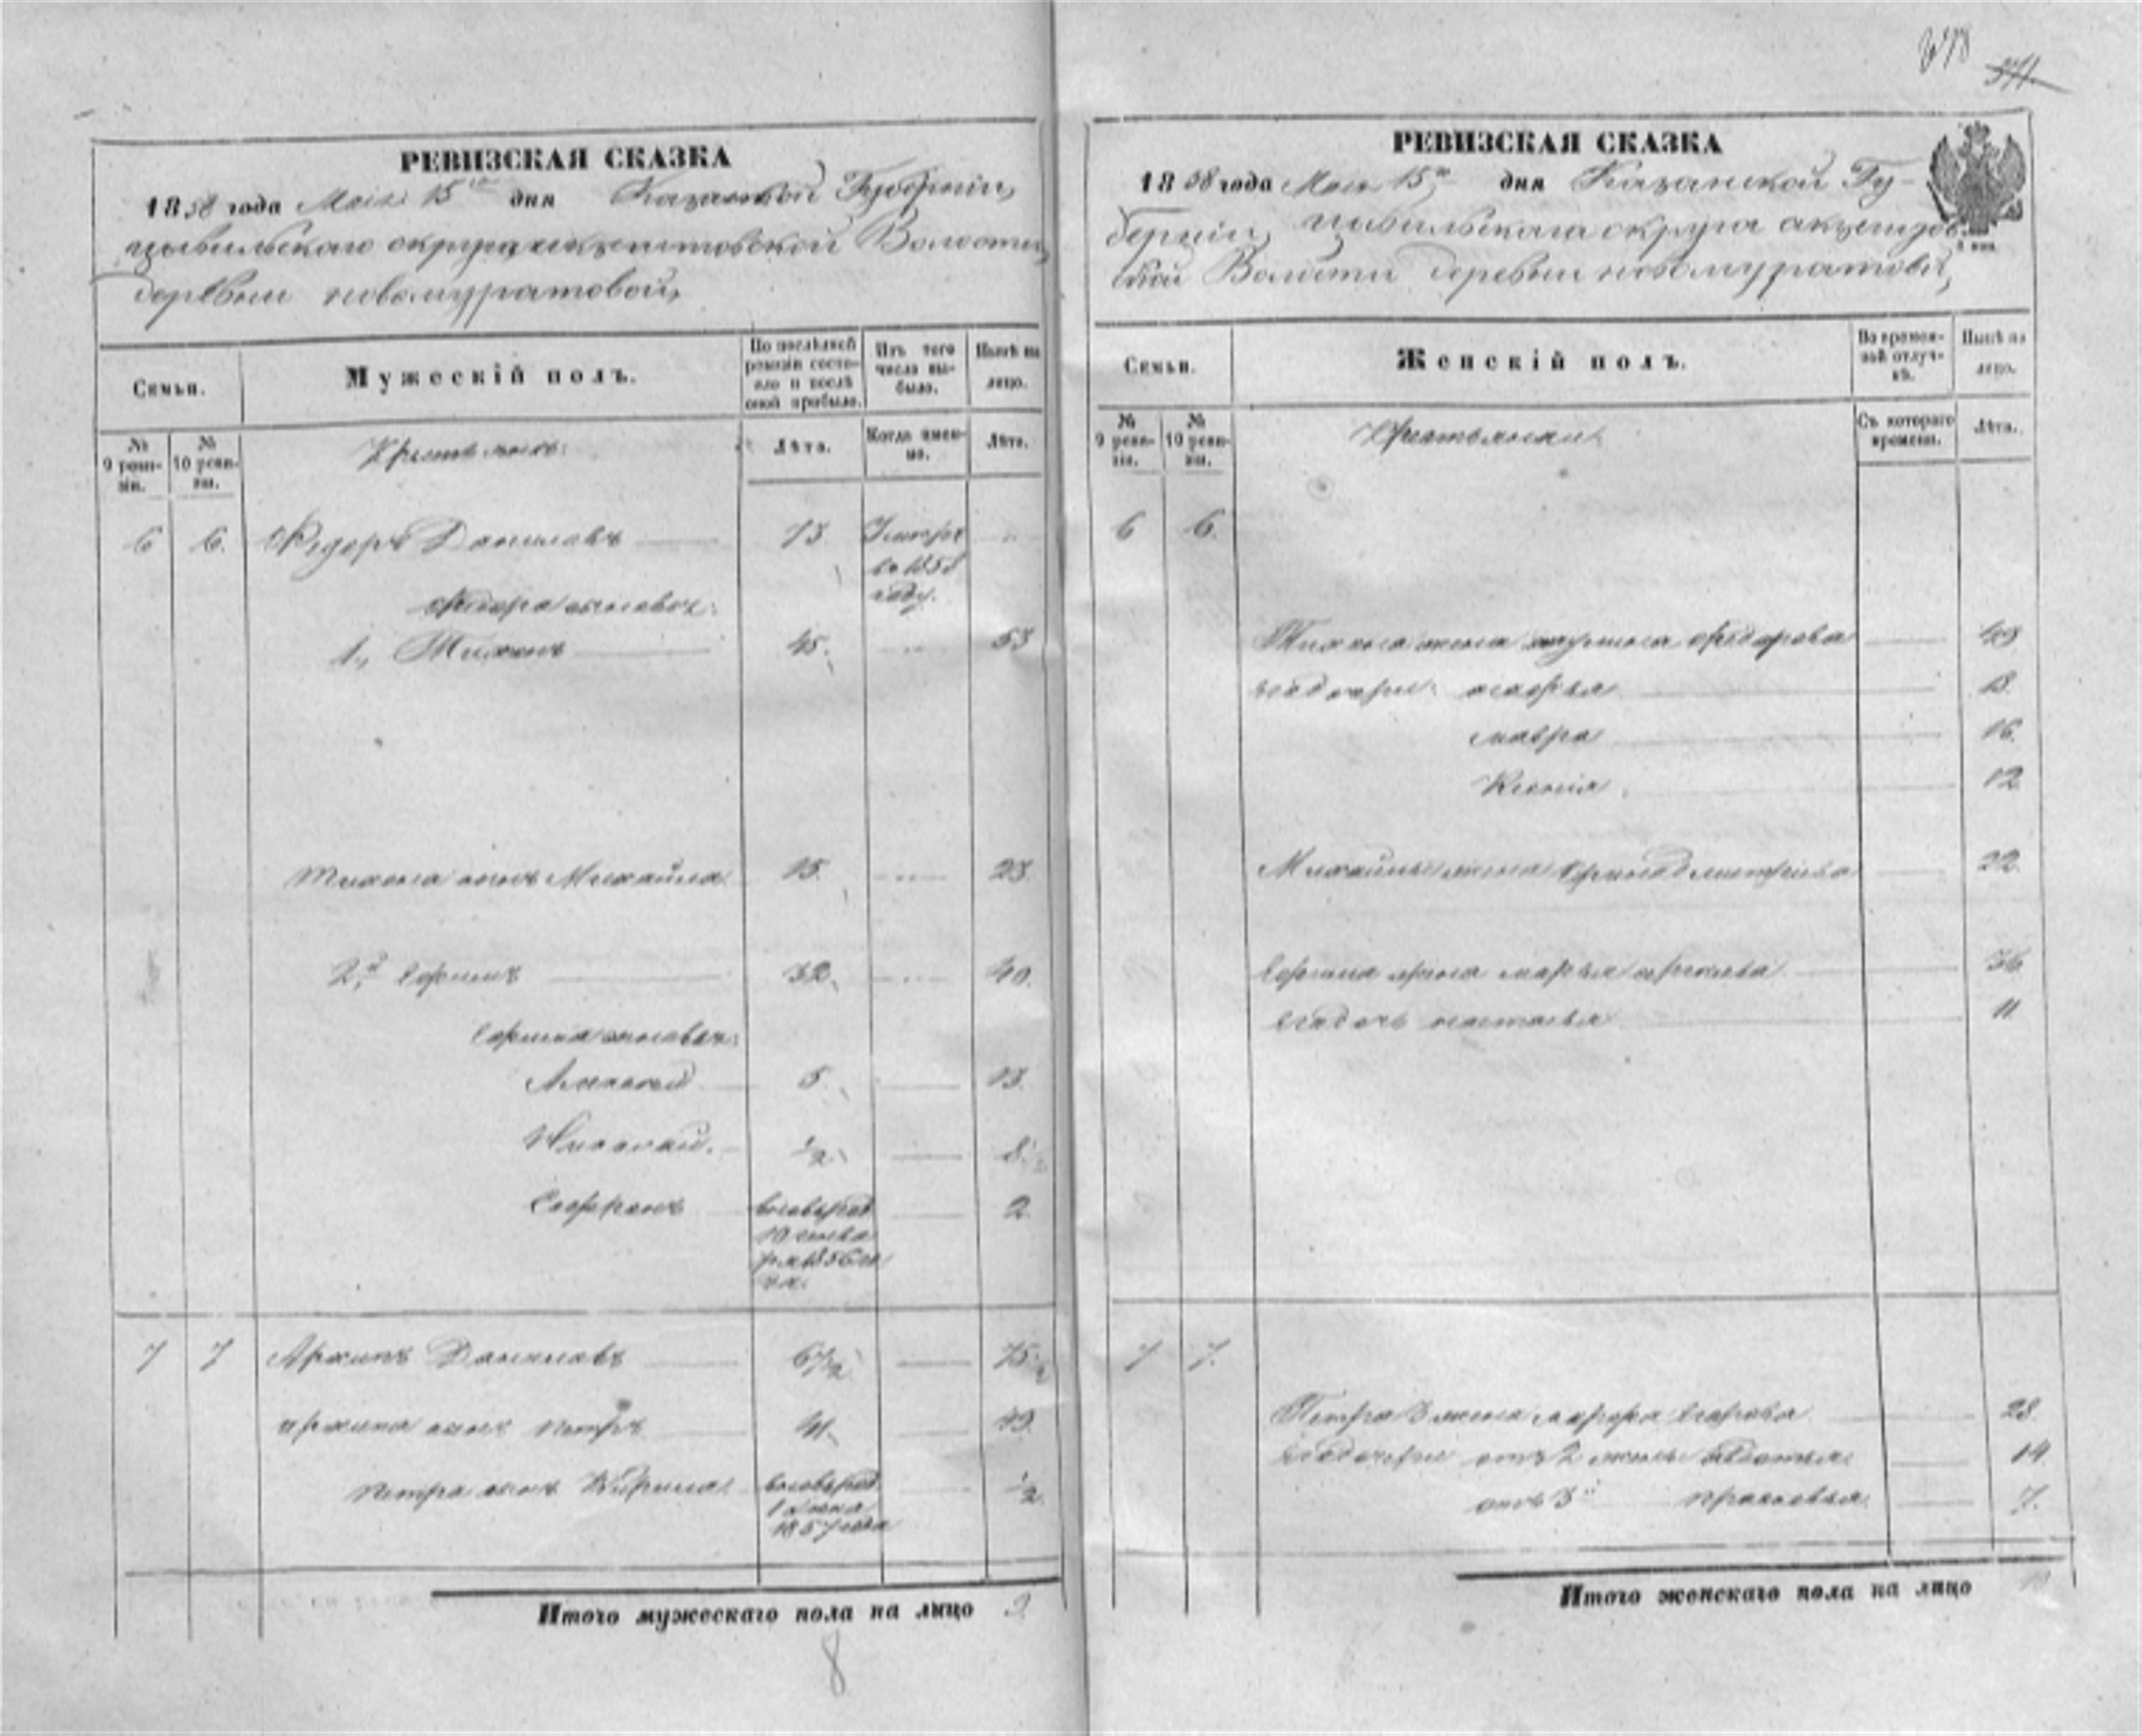 578
571
РЕВИЗСКАЯ СКАЗКА
1858 года Мая 15го дня Казанской Губерніи,
цывильскаго округа Волости,
деревни новомуратовой,
Семьи.
Мужескій полъ.
По послѣдней ревизіи состояло и послѣ оной прибыло.
Изъ того числа выбыло.
Нынѣ на лицо.
№ 9 ревизіи.
№ 10 ревизіи.
Крестьяне:
Лѣта.
Когда именно.
Лѣта.
6 6. Федоръ Даниловъ 73. Умеръ
въ 185
году.
Федора сыновья:
1., Тихонъ 45. 53
Тихона сынъ Михайла 15. 23.
2й Ефимъ 32. 40.
Ефима сыновья:
Алексей 5. 13.
Николай. ½ 8½
Сафронъ вновьрод 2
10 генва
ря 1856 го
да.
7 7 Архипъ Даниловъ 67½ 75½
архипа сынъ петръ 41. 49.
петра сынъ Кирила вновьрод ½
1857 года
Итого мужескаго пола на лицо 9.
8
РЕВИЗСКАЯ СКАЗКА
1858 года Мая 15го дня Казанской Гу-
берніи, цывильскаго округа
ской Волости деревни новомуратовой,
Семьи.
Женскій полъ.
Во временной отлучкѣ.
Нынѣ на лицо.
№ 9 ревизіи.
№ 10 ревизіи.
Крестьянки
Съ котораго времени.
Лѣта.
6 6.
Тихона жена Федорова 49
егодочери: марья 18.
мавра 16.
Ксенія. 12.
Михайлы жена дмитріева 22.
Ефима жена марья 36
егадочь настасья 11
7 7.
Петра 3 жена Егорова 28.
егодочери отъ 2 жены авдотья 14.
отъ 3й прасковья 7.
Итого женскаго пола на лицо 10